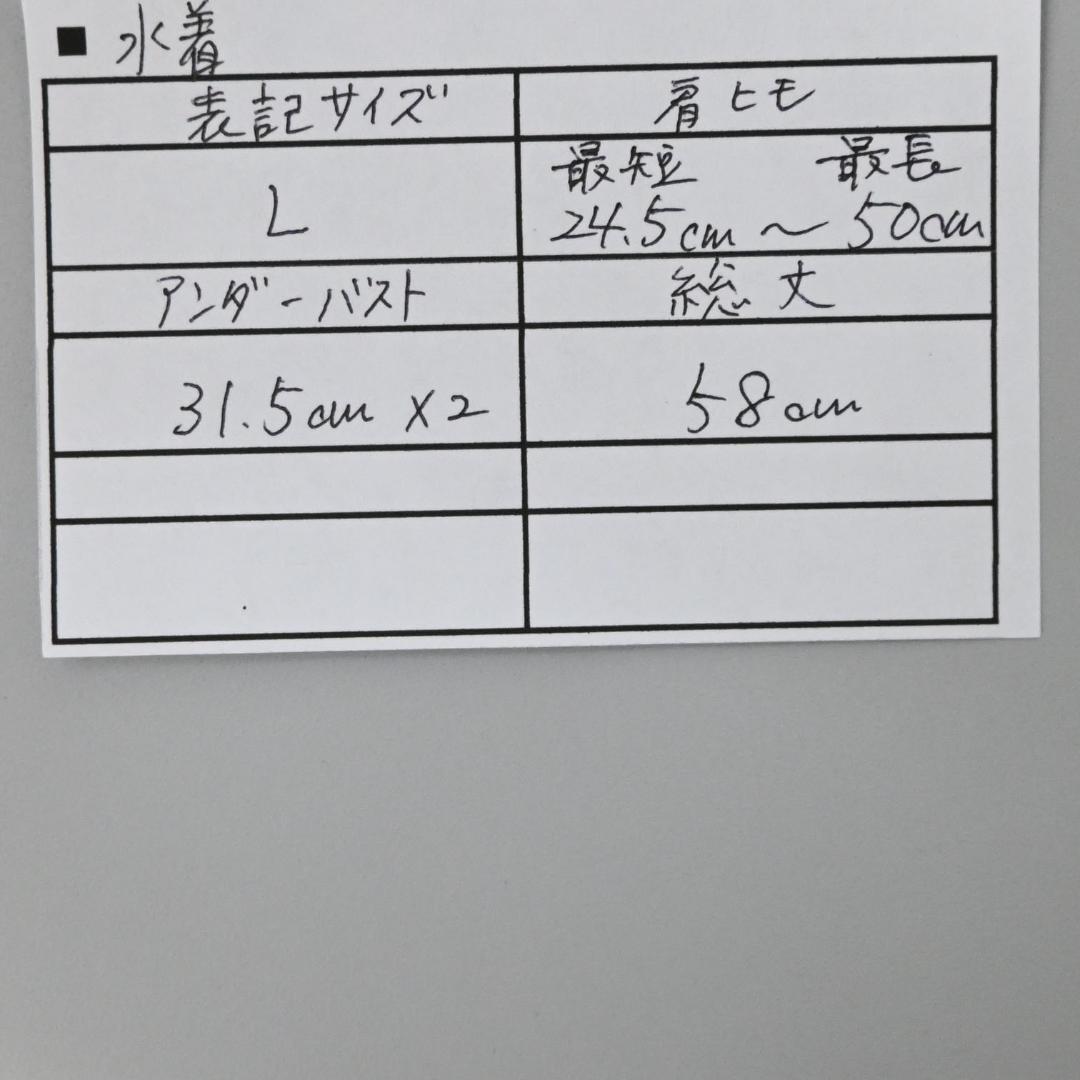 ■ 水着
表記サイズ 肩ヒモ
最短 最長
L 24.5cm ～ 50cm
アンダーバスト 総丈
31.5cm ×2 58cm